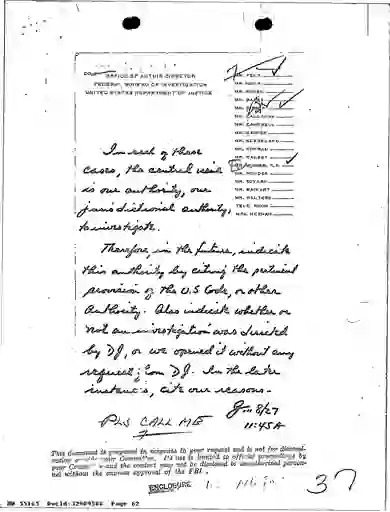 OFFICE OF ACTING DIRECTOR
FEDERAL BUREAU OF INVESTIGATION
UNITED STATES DEPARTMENT OF JUSTICE
MR. FELT
MR. CALLAHAN
MR. CAMPBELL
MR. CONRAD
MR. DALBEY
MR. MINTZ
MR. WALTERS
TELE. ROOM
In each of these
cases, the central issue
is our authority, our
jurisdictional authority,
to investigate.
Therefore, in the future, indicate
this authority by citing the pertinent
provision of the U.S Code, or other
authority. Also indicate whether or
not an investigation was directed
by DJ, or we opened it without any
request from DJ. In the later
instant's, cite our reasons.
8/27
11:45A
PLS CALL ME
This document is prepared in response to your request and is not for dissemi-
nation outside your Committee. Its use is limited to official proceedings by
your Committee and the content may not be disclosed to unauthorized person-
nel without the express approval of the FBI.
ENCLOSURE
37
NW 55165 DocId:32989586 Page 62